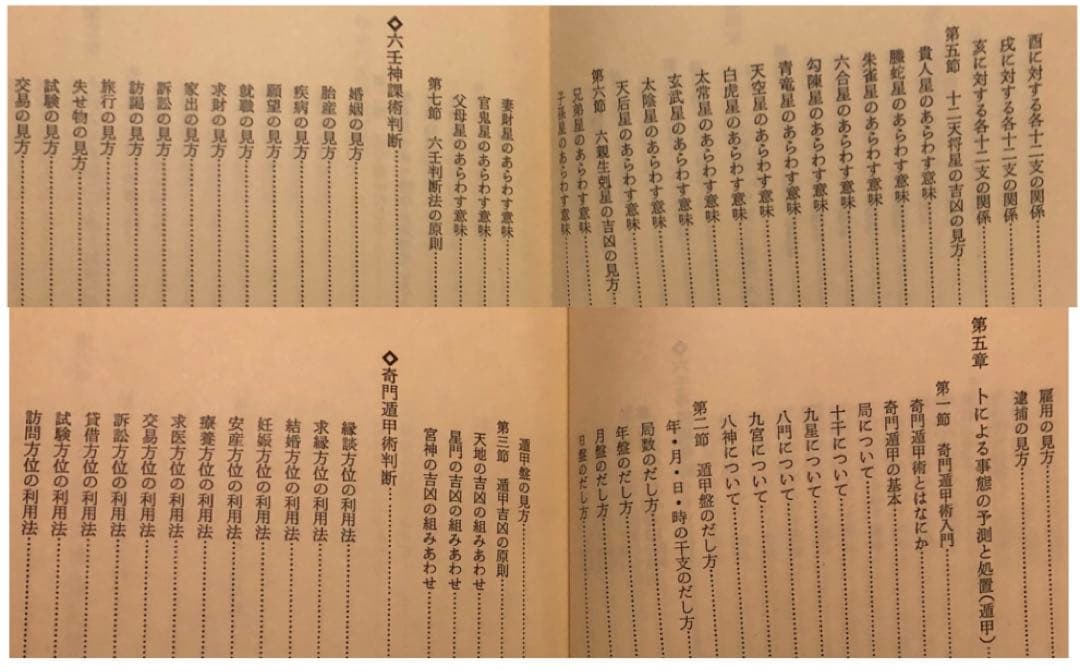 酉に対する各十二支の関係
戌に対する各十二支の関係
亥に対する各十二支の関係
第五節 十二天将星の吉凶の見方
貴人星のあらわす意味
螣蛇星のあらわす意味
朱雀星のあらわす意味
六合星のあらわす意味
勾陳星のあらわす意味
青竜星のあらわす意味
天空星のあらわす意味
白虎星のあらわす意味
太常星のあらわす意味
玄武星のあらわす意味
太陰星のあらわす意味
天后星のあらわす意味
第六節 六親生剋星の吉凶の見方
兄弟星のあらわす意味
子孫星のあらわす意味
妻財星のあらわす意味
官鬼星のあらわす意味
父母星のあらわす意味
第七節 六壬判断法の原則
◇六壬神課術判断
婚姻の見方
胎産の見方
疾病の見方
願望の見方
就職の見方
求財の見方
家出の見方
訴訟の見方
訪謁の見方
旅行の見方
失せ物の見方
試験の見方
交易の見方
雇用の見方
逮捕の見方
第五章 卜による事態の予測と処置(遁甲)
第一節 奇門遁甲術入門
奇門遁甲術とはなにか
奇門遁甲の基本
局について
十干について
九星について
八門について
九宮について
八神について
第二節 遁甲盤のだし方
年・月・日・時の干支のだし方
局数のだし方
年盤のだし方
月盤のだし方
日盤のだし方
遁甲盤の見方
第三節 遁甲吉凶の原則
天地の吉凶の組みあわせ
星門の吉凶の組みあわせ
宮神の吉凶の組みあわせ
◇奇門遁甲術判断
縁談方位の利用法
求縁方位の利用法
結婚方位の利用法
妊娠方位の利用法
安産方位の利用法
療養方位の利用法
求医方位の利用法
交易方位の利用法
訴訟方位の利用法
貸借方位の利用法
試験方位の利用法
訪問方位の利用法